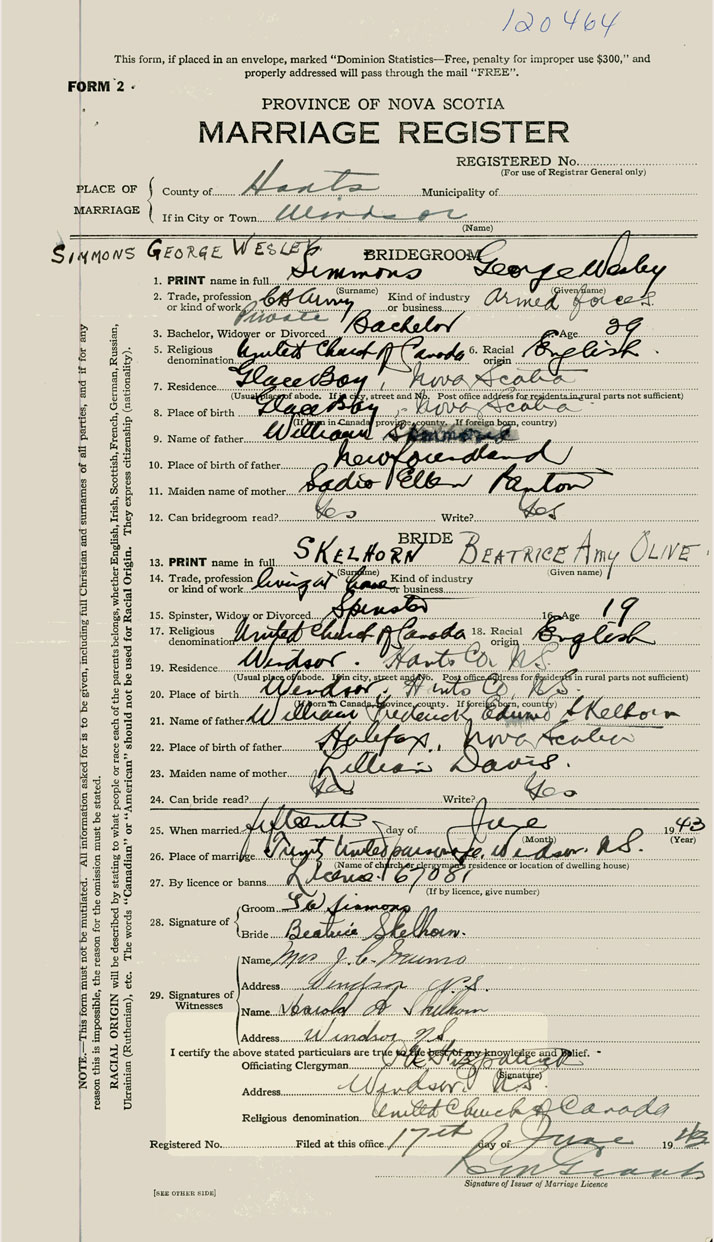 120464
This form, if placed in an envelope, marked "Dominion Statistics—Free, penalty for improper use $300," and
properly addressed will pass through the mail "FREE".
FORM 2
PROVINCE OF NOVA SCOTIA
MARRIAGE REGISTER
REGISTERED No.
(For use of Registrar General only)
PLACE OF MARRIAGE
County of Hants Municipality of
If in City or Town Windsor
(Name)
SIMMONS GEORGE WESLEY
BRIDEGROOM
1. PRINT name in full Simmons George Wesley
(Surname) (Given name)
2. Trade, profession or kind of work Army Private Kind of industry or business Armed forces
3. Bachelor, Widower or Divorced Bachelor Age 29
5. Religious denomination United Church of Canada 6. Racial origin English
7. Residence Glace Bay, Nova Scotia
(Usual place of abode. If in city, street and No. Post office address for residents in rural parts not sufficient)
8. Place of birth Glace Bay, Nova Scotia
(If born in Canada, province, county. If foreign born, country)
9. Name of father William Simmons
10. Place of birth of father Newfoundland
11. Maiden name of mother Sadie Ellen
12. Can bridegroom read? Yes Write? Yes
BRIDE
13. PRINT name in full SKELHORN BEATRICE Amy OLIVE
(Surname) (Given name)
14. Trade, profession or kind of work living at home Kind of industry or business
15. Spinster, Widow or Divorced Spinster 16. Age 19
17. Religious denomination United Church of Canada 18. Racial origin English
19. Residence Windsor. Hants Co. N.S.
(Usual place of abode. If in city, street and No. Post office address for residents in rural parts not sufficient)
20. Place of birth Windsor. Hants Co. N.S.
(If born in Canada, province, county. If foreign born, country)
21. Name of father William Frederick Skelhorn
22. Place of birth of father Halifax, Nova Scotia
23. Maiden name of mother Lillian Davis.
24. Can bride read? Yes Write? Yes
25. When married fifteenth day of June 1943
(Month) (Year)
26. Place of marriage United parsonage, Windsor. N.S.
(Name of church or clergyman's residence or location of dwelling house)
27. By licence or banns Licence 67081
(If by licence, give number)
28. Signature of
Groom Simmons
Bride Beatrice Skelhorn.
29. Signatures of Witnesses
Name Mrs J. C. Munro
Address Windsor N.S.
Name Harold A Skelhorn
Address Windsor NS
I certify the above stated particulars are true to the best of my knowledge and belief.
Officiating Clergyman
(Signature)
Address Windsor. N.S.
Religious denomination United Church of Canada
Registered No. Filed at this office 17th day of June 1943
Signature of Issuer of Marriage Licence
[SEE OTHER SIDE]
NOTE.—This form must not be mutilated. All information asked for is to be given, including full Christian and surnames of all parties, and if for any
reason this is impossible, the reason for the omission must be stated.
RACIAL ORIGIN will be described by stating to what people or race each of the parents belongs, whether English, Irish, Scottish, French, German, Russian,
Ukrainian (Ruthenian), etc. The words "Canadian" or "American" should not be used for Racial Origin. They express citizenship (nationality).